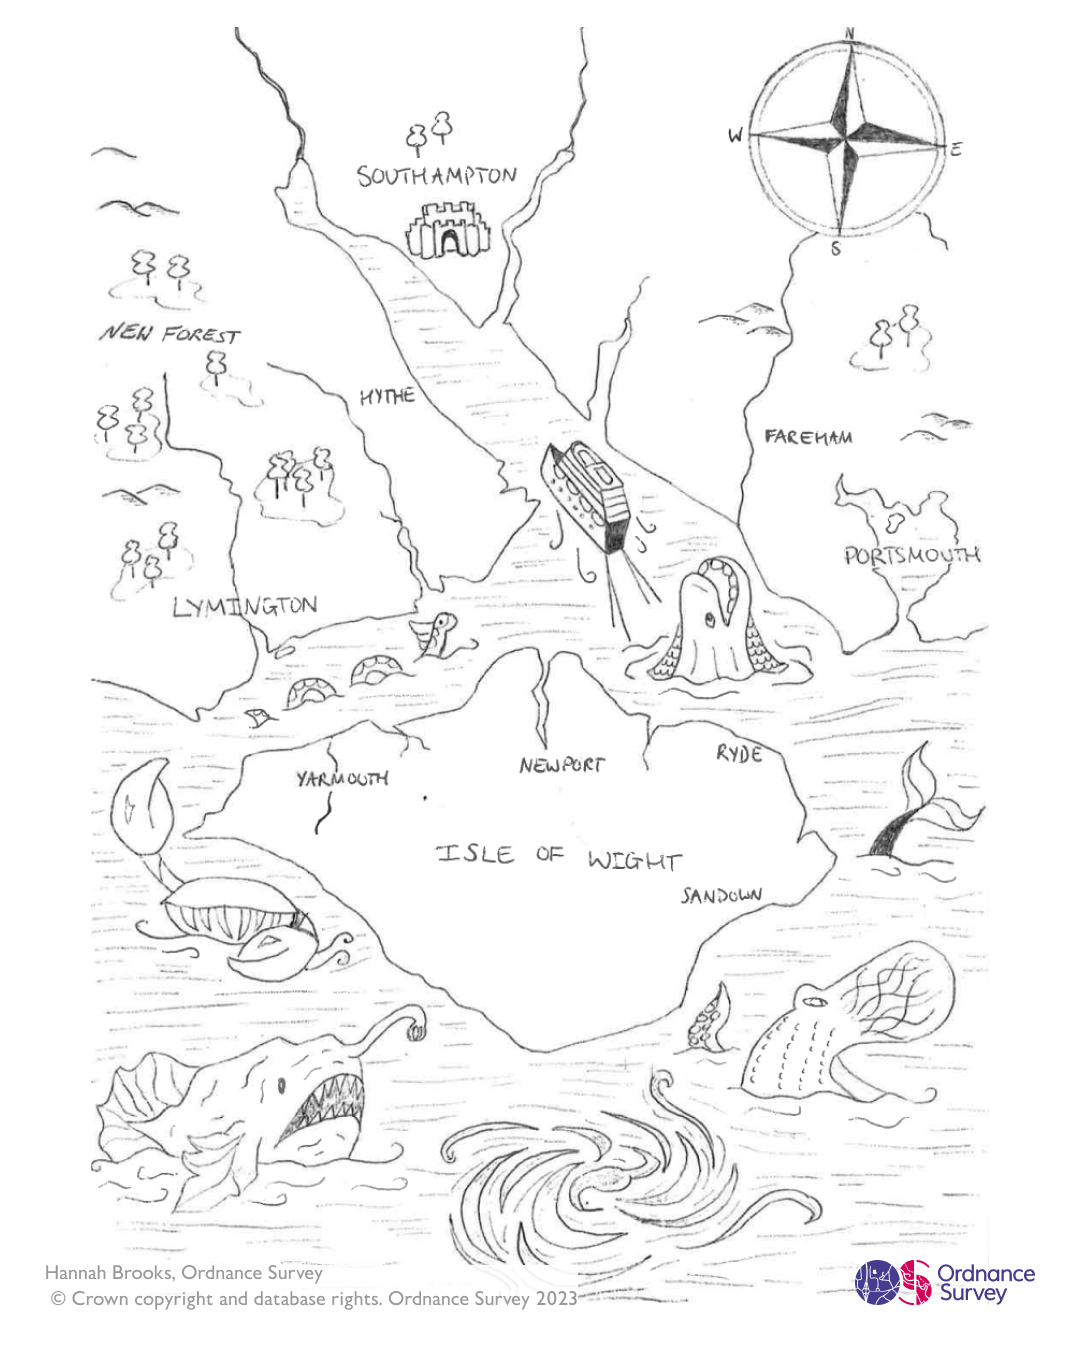 N
W
E
S
SOUTHAMPTON
NEW FOREST
HYTHE
FAREHAM
PORTSMOUTH
LYMINGTON
YARMOUTH
NEWPORT
RYDE
ISLE OF WIGHT
SANDOWN
Hannah Brooks, Ordnance Survey
© Crown copyright and database rights. Ordnance Survey 2023
Ordnance
Survey